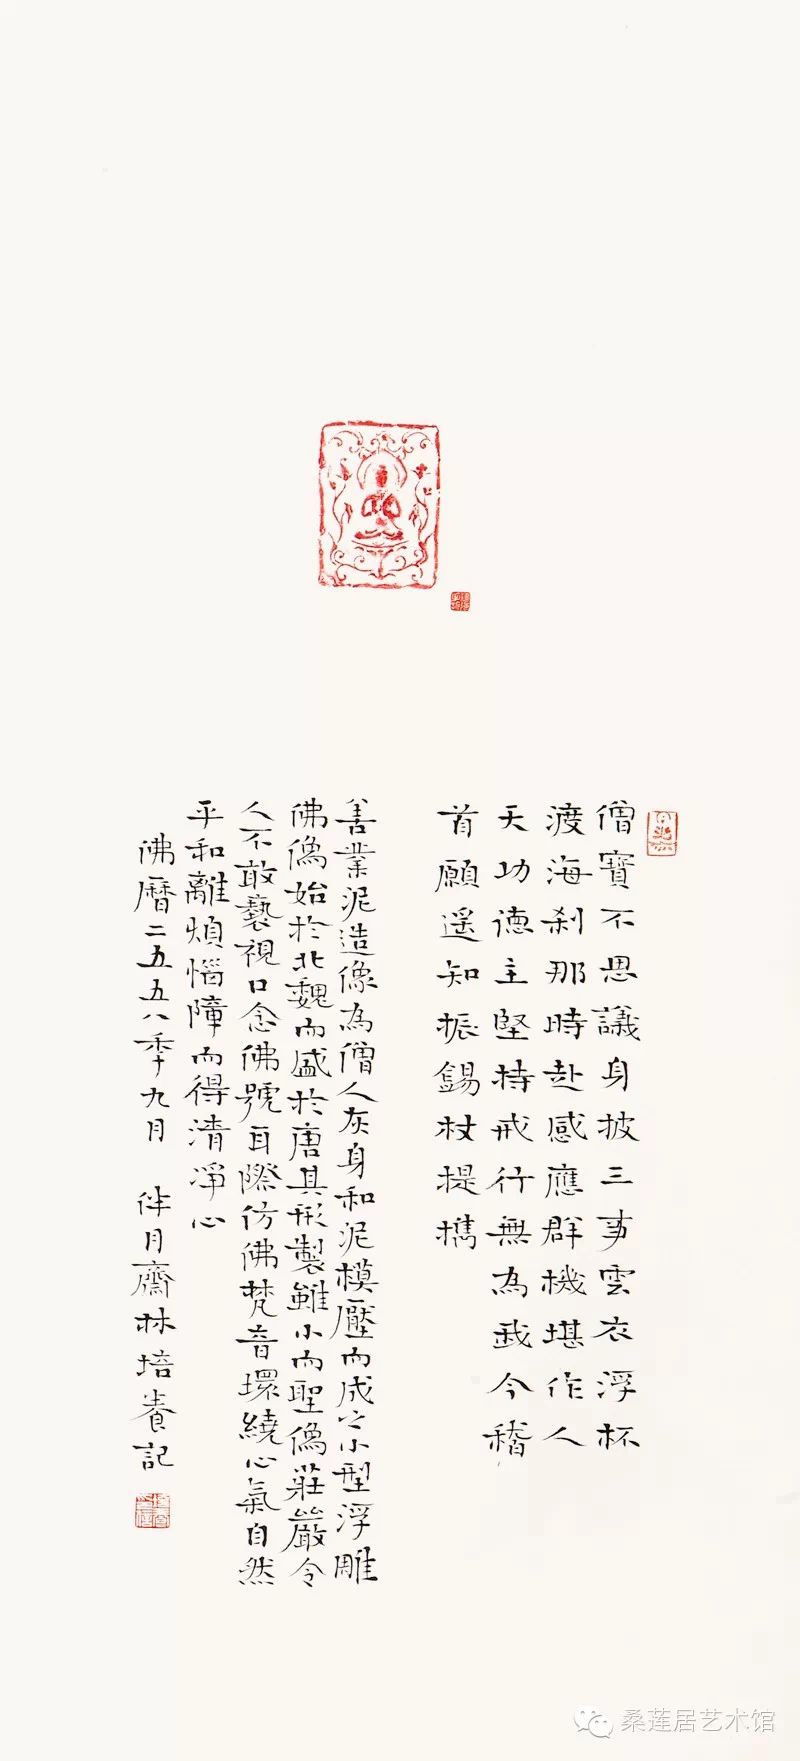 僧寶不思議身披三事雲衣浮杯
渡海刹那時赴感應群機堪作人
天功德主堅持戒行無為我今稽
首願遥知振錫杖提攜
善業泥造像為僧人灰身和泥模壓而成之小型浮雕
佛像始於北魏而盛於唐其形製雖小而聖像莊嚴令
人不敢褻視口念佛號耳際仿佛梵音環繞心氣自然
平和離煩惱障而得清凈心
佛曆二五五八季九月 伴月齋林培養記
桑莲居艺术馆